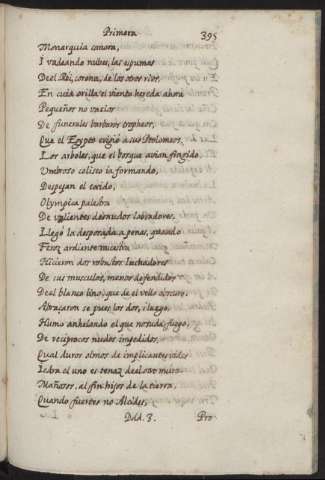 Primera.
395
Monarquia canora,
I vadeando nubes, las espumas
Deel Rei, corona, de los otros rios,
En cuia orilla el viento hereda ahora
Pequeños no vacios
De funerales barbaros tropheos,
Que el Egypto erigiò a sus Ptolomeos.
Los arboles, que el bosque avian fingido,
Umbroso coliseo ia formando,
Despejan el exido,
Olympica palestra
De valientes desnudos labradores.
Llegò la desposada a penas, quando
Feroz ardiente muestra
Hicieron dos robustos luchadores
De sus musculos, menos defendidos
Deel blanco lino, que de el vello obscuro.
Abraçaron se pues los dos, i luego,
Humo anhelando el que no suda fuego,
De reciprocos nudos impedidos
Qual duros olmos de implicantes vides
Iedra el uno es tenaz deel otro muro.
Mañosos, al fin hijos de la tierra,
Quando fuertes no Alcides,
Ddd. 3.
Pro